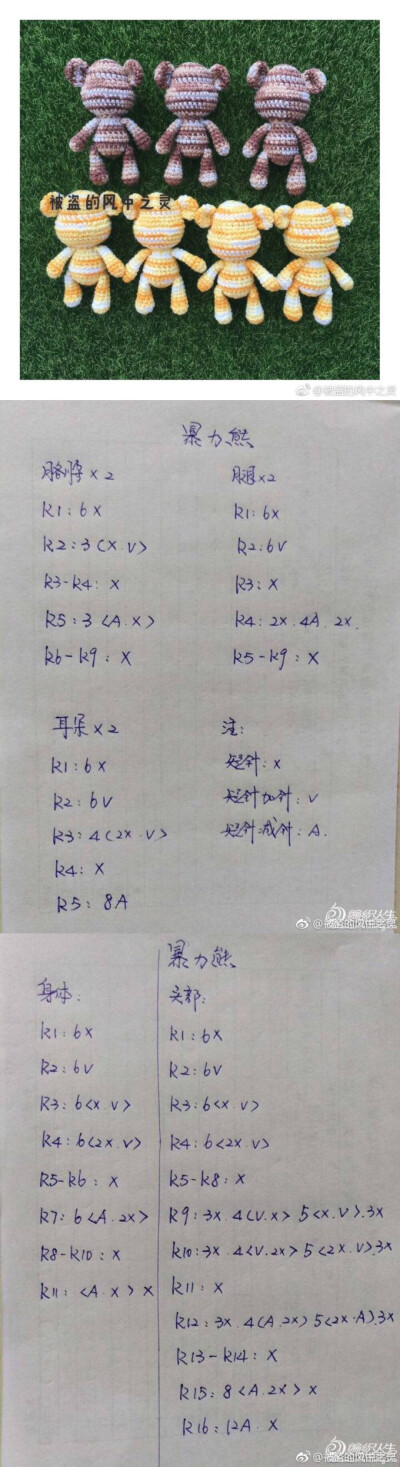 被盗的风中之灵
@被盗的风中之灵
暴力熊
胳膊×2
R1:6X
R2:3(X.V)
R3-R4:X
R5:3<A.X>
R6-R9:X
腿×2
R1:6X
R2:6V
R3:X
R4:2X.4A.2X.
R5-R9:X
耳朵×2
R1:6X
R2:6V
R3:4(2X.V)
R4:X
R5:8A
注:
短针:X
短针加针:V
短针减针:A.
编织人生
@被盗的风中之灵
暴力熊
身体:
R1:6X
R2:6V
R3:6<X.V>
R4:6<2X.V>
R5-R6:X
R7:6<A.2X>
R8-R10:X
R11:<A.X>X
头部:
R1:6X
R2:6V
R3:6<X.V>
R4:6<2X.V>
R5-R8:X
R9:3X.4<V.X>5<X.V>.3X
R10:3X.4<V.2X>5<2X.V>.3X
R11:X
R12:3X.4(A.2X)5<2X.A).3X
R13-R14:X
R15:8<A.2X>X
R16:12A.X
编织人生
@被盗的风中之灵